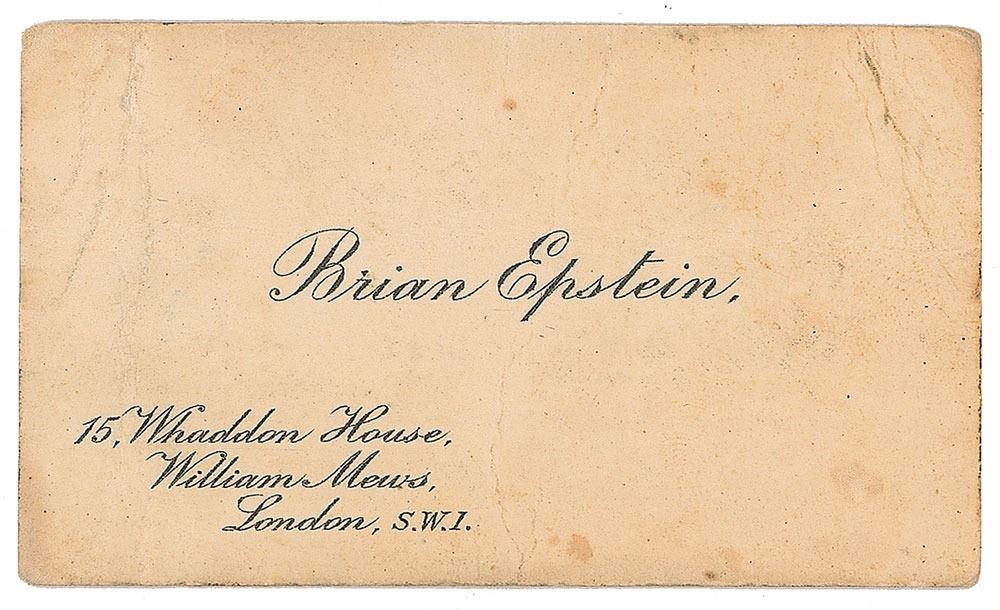 Brian Epstein.
15, Whaddon House,
William Mews,
London, S.W.1.